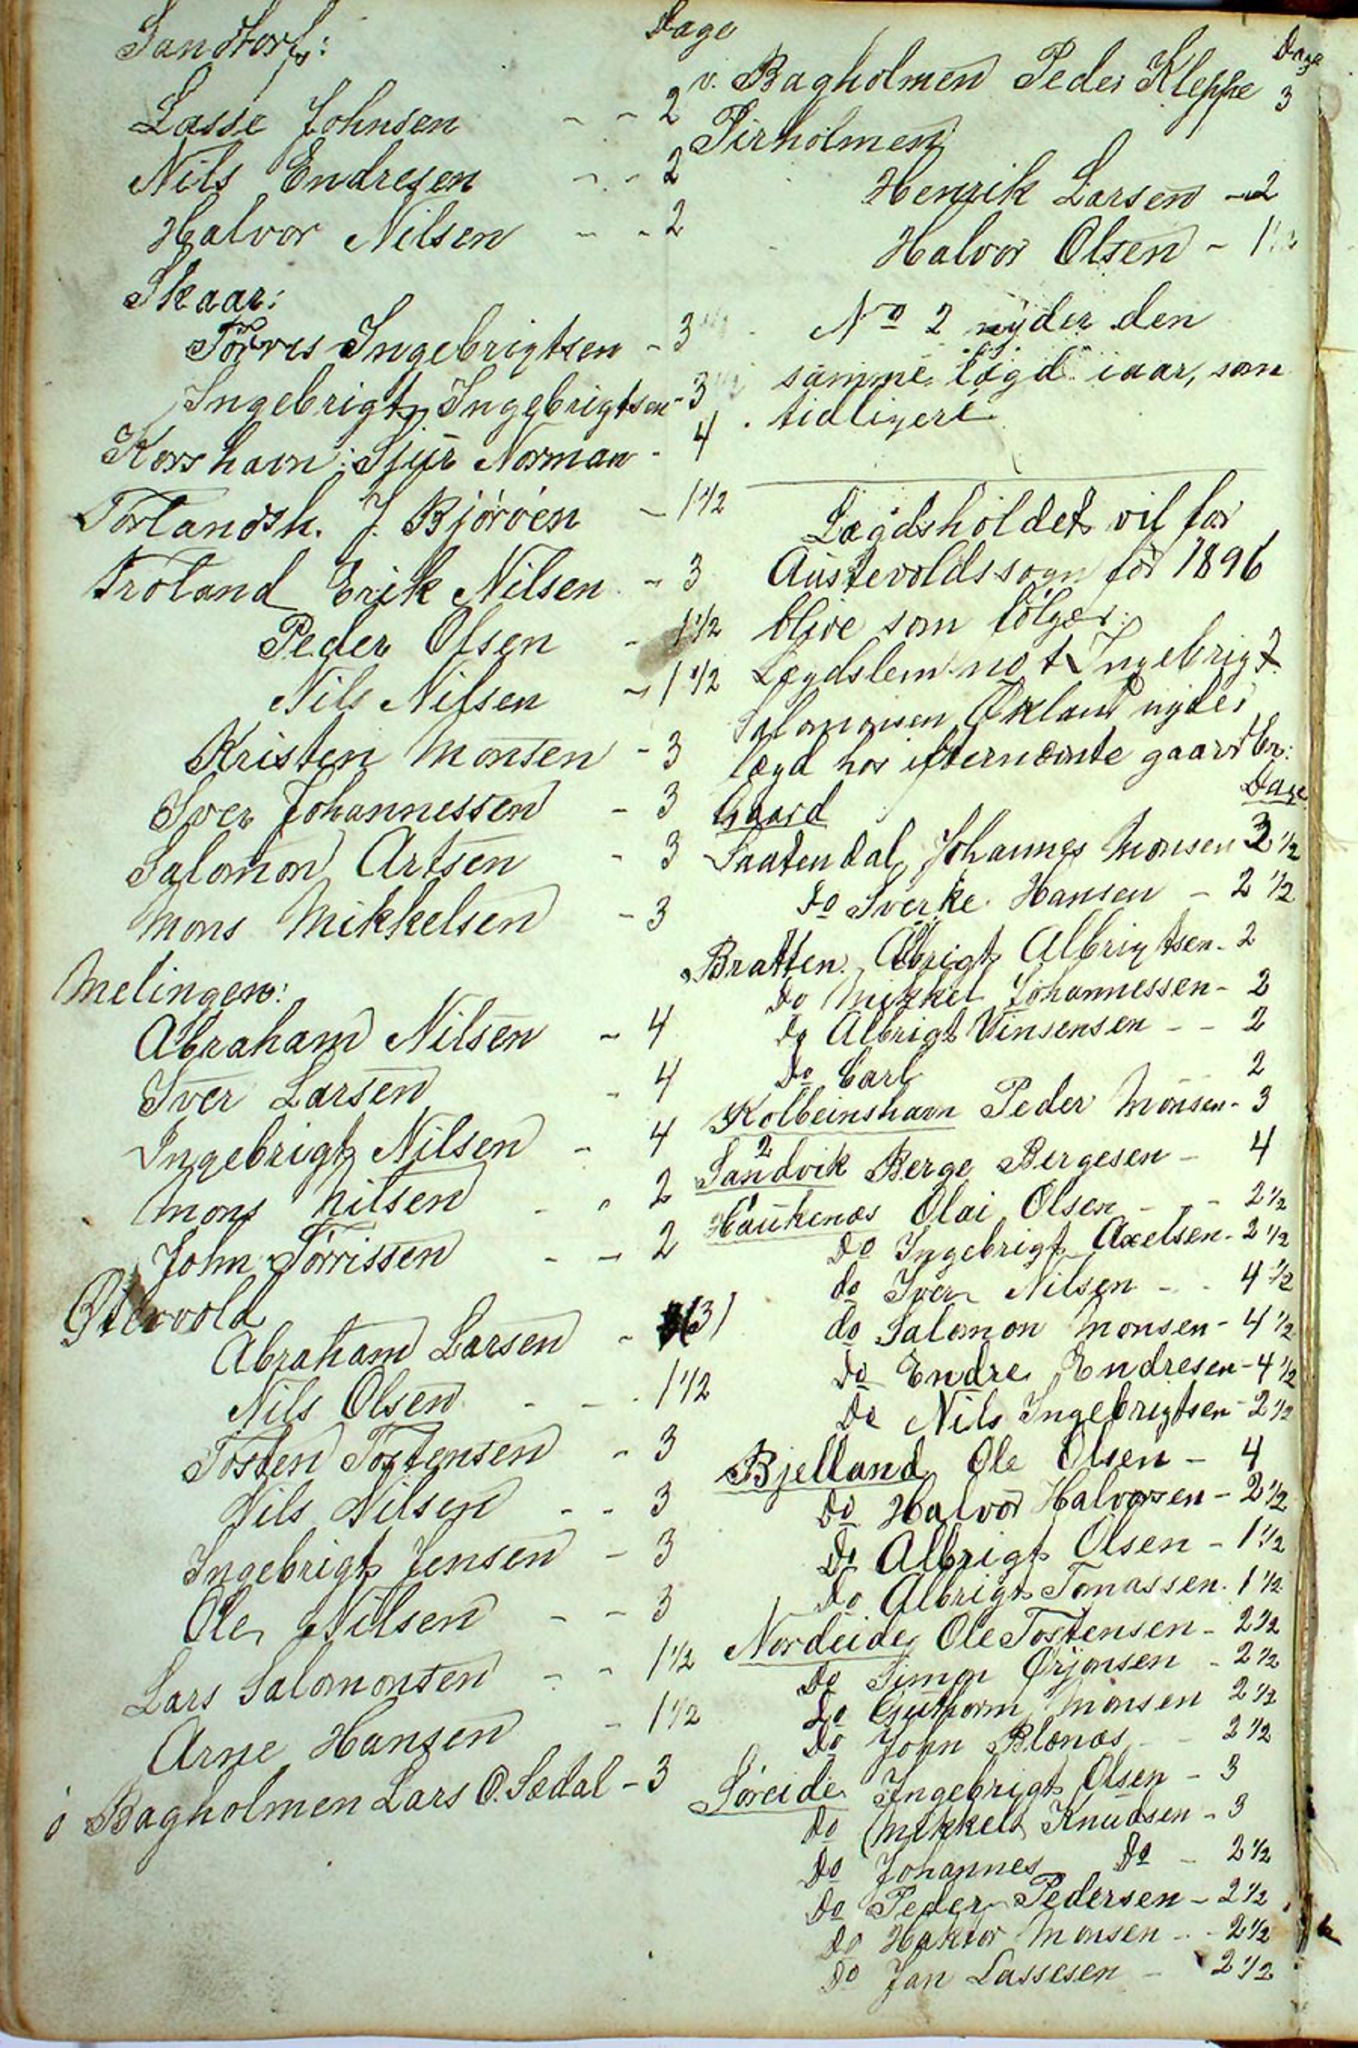 Sandtorf: Dage
Lasse Johnsen - - 2
Nils Endresen - - 2
Halvor Nilsen - - 2
Skaar:
Torres Ingebrigtsen - 3
Ingebrigt Ingebrigtsen - 3
Korshavn: Sjur Norman - 4
Torlandsh. J. Björöen - 1 1/2
Troland Erik Nilsen - 3
Peder Olsen - 1 1/2
Nils Nilsen - 1 1/2
Kristen Monsen - 3
Iver Johannessen - 3
Salomon Artsen - 3
Mons Mikkelsen - 3
Melingen:
Abraham Nilsen - 4
Iver Larsen - 4
Ingebrigt Nilsen - 4
Mons Nilsen - - 2
John Törrissen - - 2
Östervold
Abraham Larsen - (3)
Nils Olsen - - 1 1/2
Tosten Tostensen - 3
Nils Nilsen - - 3
Ingebrigt Jensen - 3
Ole Nilsen - - 3
Lars Salomonsen - - 1 1/2
Arne Hansen - 1 1/2
ö Bagholmen Lars O. Sædal - 3
Dage
v. Bagholmen Peder Kleppe 3
Pirholmen
Henrik Larsen - 2
Halvor Olsen - 1 1/2
No 2 nyder den
samme lægd iaar, som
tidligere
Lægdsholdet vil for
Austevoldssogn for 1896
blive som fölger:
Lægdslem no 1 Ingebrigt
Salomonsen Økland nyder
lægd hos efternævnte gaardbr:
Gaard Dage
Saatendal Johannes Monsen 2 1/2
do Sverke Hansen - 2 1/2
Bratten Albrigt Albrigtsen - 2
do Mikkel Johannessen - 2
do Albrigt Vinsensen - - 2
do Carl 2
Kolbeinshavn Peder Monsen - 3
Sandvik 2 Berge Bergesen - 4
Haukenæs Olai Olsen - - 2 1/2
do Ingebrigt Axelsen - 2 1/2
do Iver Nilsen - - 4 1/2
do Salomon Monsen - 4 1/2
do Endre Endresen - 4 1/2
do Nils Ingebrigtsen - 2 1/2
Bjelland Ole Olsen - 4
do Halvor Halvorsen - 2 1/2
do Albrigt Olsen - 1 1/2
do Albrigt Tomassen - 1 1/2
Nordeide Ole Tostensen - 2 1/2
do Simon Örjonsen - 2 1/2
do Guthorm Monsen 2 1/2
do John Blænæs - 2 1/2
Söreide Ingebrigt Olsen - 3
do Mikkel Knudsen - 3
do Johannes do - 2 1/2
do Peder Pedersen - 2 1/2
do Haktor Monsen - - 2 1/2
do Jan Lassesen - 2 1/2